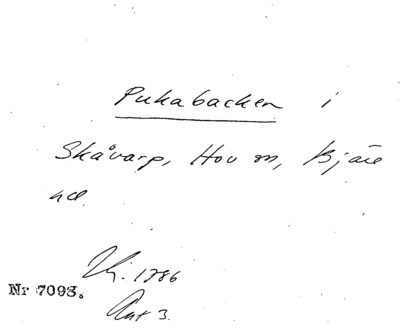 Pukabacken i
Skåvarp, Hov sn, Bjäre
hd.
Vj. 1786
Nr 7093.
Akt 3.